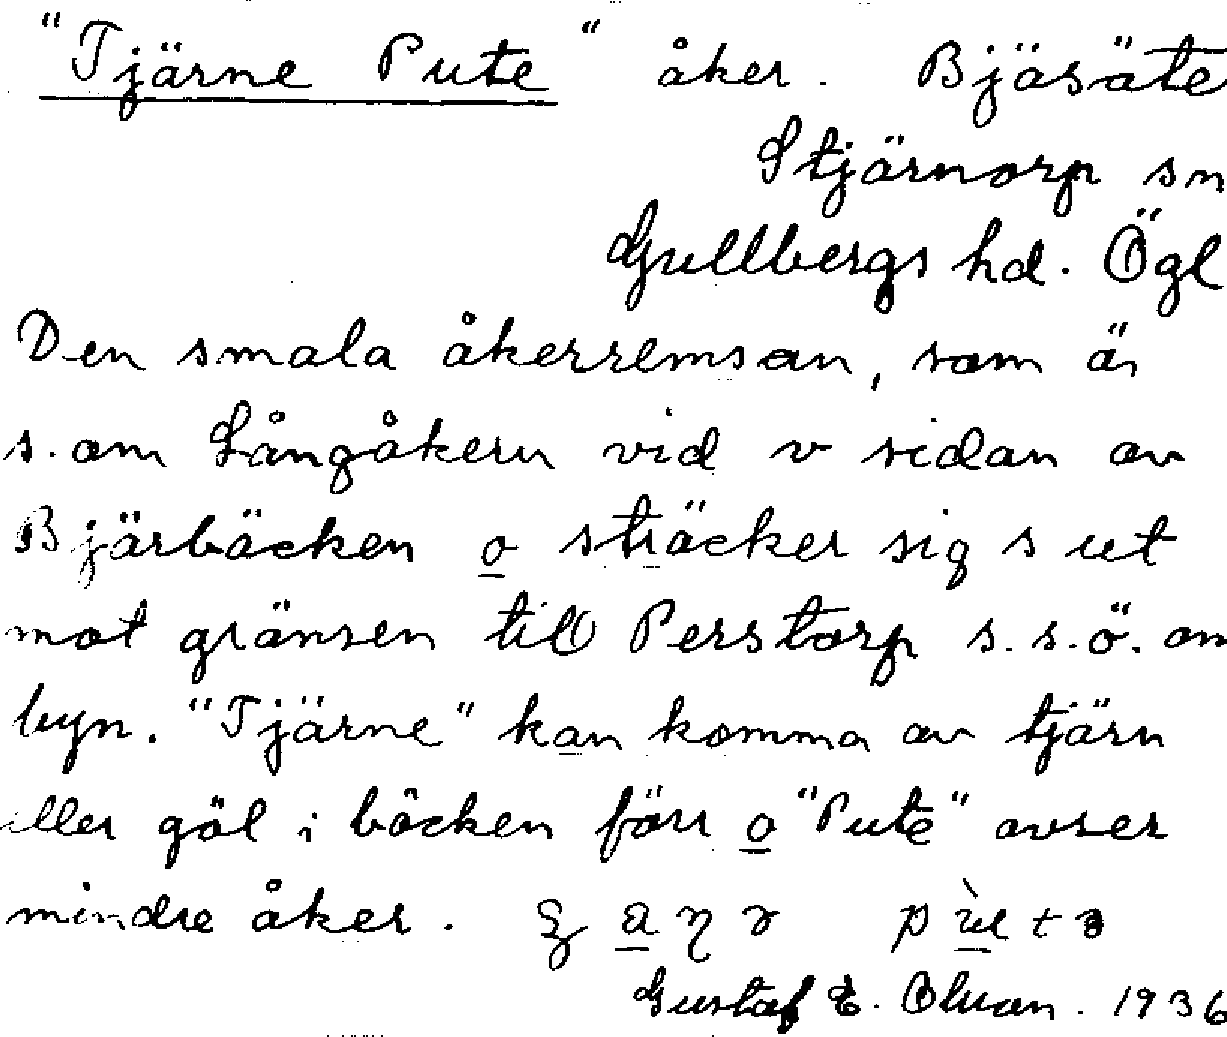 "Tjärne Pute" åker. Bjäsäte
Stjärnorp sn
Gullbergs hd. Ögl
Den smala åkerremsan, som är
s. om Långåkern vid v sidan av
Bjärbäcken o sträcker sig s ut
mot gränsen till Perstorp s.s.ö. om
byn. "Tjärne" kan komma av tjärn
eller göl i bäcken förr o "Pute" avser
mindre åker.
Gustaf E. 1936